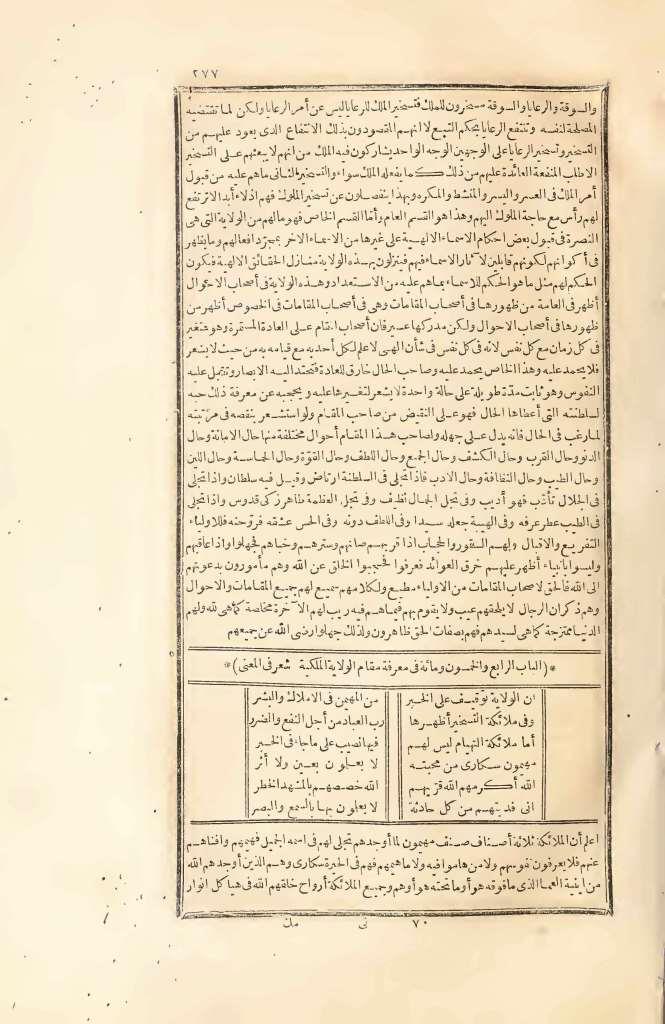 ٢٧٧
والسوقة والرعايا والسوقة مسخرون للملك فتسخير الملك للرعايا ليس عن أمر الرعايا ولكن لما تقتضيه
المصلحة لنفسه وتنتفع الرعايا بحكم التبع لا انهم المقصودون بذلك الانتفاع الذى يعود عليهم من
التسخير وتسخير الرعايا على الوجهين الوجه الواحد يشاركون فيه الملك من انهم لا يبعثهم على التسخير
الاطلب المنفعة العائدة عليهم من ذلك كما يفعله الملك سواء والتسخير الثانى ماهم عليه من قبول
أمر الملك فى العسر واليسر والمنشط والمكره وبهذا ينفصلون عن تسخير الملوك فهم اذلاء أبدا لا ترتفع
لهم رأس مع حاجة الملوك اليهم وهذا هو القسم العام وأما القسم الخاص فهو مالهم من الولاية التى هى
النصرة فى قبول بعض احكام الاسماء الالهية على غيرها من الاسماء الاخر بمجرد افعالهم وما يظهر
فى أكوانهم لكونهم قابلين لآثار الاسماء فيهم فينزلون بهذه الولاية منازل الحقائق الالهية فيكون
الحكم لهم مثل ما هو الحكم للاسماء بما هم عليه من الاستعداد وهذه الولاية فى أصحاب الاحوال
أظهر فى العامة من ظهورها فى أصحاب المقامات وهى فى أصحاب المقامات فى الخصوص أظهر من
ظهورها فى أصحاب الاحوال ولكن مدركها عسير فان أصحاب المقام على العادة المستمرة وهو متغير
فى كل زمان مع كل نفس لانه فى كل نفس فى شأن الهى لا علم لكل أحد به مع قيامه به من حيث لا يشعر
فلا يحمد عليه وهذا الخاص يحمد عليه وصاحب الحال خارق للعادة فتحتد اليه الابصار وتقبل عليه
النفوس وهو ثابت مدة طويلة على حالة واحدة لا يشعر لتغيرها عليه ويحجبه عن معرفة ذلك حبه
لسلطنته التى أعطاها الحال فهو على النقيض من صاحب المقام ولو استشعر بنقصه فى مرتبته
لما رغب فى الحال فانه يدل على جهله ولصاحب هذا المقام أحوال مختلفة منها حال الامانة وحال
الدنو وحال القرب وحال الكشف وحال الجمع وحال اللطف وحال القوة وحال الحماسة وحال اللين
وحال الطيب وحال النظافة وحال الادب فاذا تجلى فى السلطنة ارتاض وقيل فيه سلطان واذا تجلى
فى الجلال تأدب فهو أديب وفى تجلى الجمال نظيف وفى تجلى العظمة طاهر زكى قدوس واذا تجلى
فى الطيب عطر عرفه وفى الهيبة جعله سيدا وفى اللطف دونه وفى الحس عشقه فروحنه فللاولياء
التفريع والاقبال ولهم الستور والحجاب اذا قربهم صانهم وسترهم وخباهم فجهلوا واذا عاقبهم
وليسوا بانبياء أظهر عليهم خرق العوائد فعرفوا فحجبوا الخلق عن الله وهم مأمورون بدعوتهم
الى الله فالحق لاصحاب المقامات من الاولياء مطيع ولكلامهم سميع لهم جميع المقامات والاحوال
وهم ذكران الرجال لا يلحقهم عيب ولا يقوم بهم فيما هم فيه ريب لهم الآخرة مخلصة كما هى لله ولهم
الدنيا ممتزجة كما هى لسيدهم فهم بصفات الحق ظاهرون ولذلك جهلوا رضى الله عن جميعهم
* (الباب الرابع والخمسون ومائة فى معرفة مقام الولاية الملكية شعر فى المعنى) *
ان الولاية توقيف على الخبر من المهيمن فى الاملاك والبشر
وفى ملائكة التسخير أظهرها رب العباد من أجل النفع والضرر
أما ملائكة التهيام ليس لهم فيها نصيب على ما جاء فى الخبر
مهيمون سكارى من محبته لا يعلمون بعين ولا أثر
الله أكرمهم الله قربهم الله خصصهم بالمشهد الخطر
انى فديتهم من كل حادثة لا يعلمون بها بالسمع والبصر
اعلم أن الملائكة ثلاثة أصناف صنف مهيمون لما أوجدهم تجلى لهم فى اسمه الجميل فهيمهم وافناهم
عنهم فلا يعرفون نفوسهم ولا من هاموا فيه ولا ما هيمهم فهم فى الحيرة سكارى وهم الذين أوجدهم الله
من اينية العما الذى ما فوقه هوأ وما تحته هوأ وهم وجميع الملائكة أرواح خلقهم الله فى هياكل انوار
٧٠ نى مك